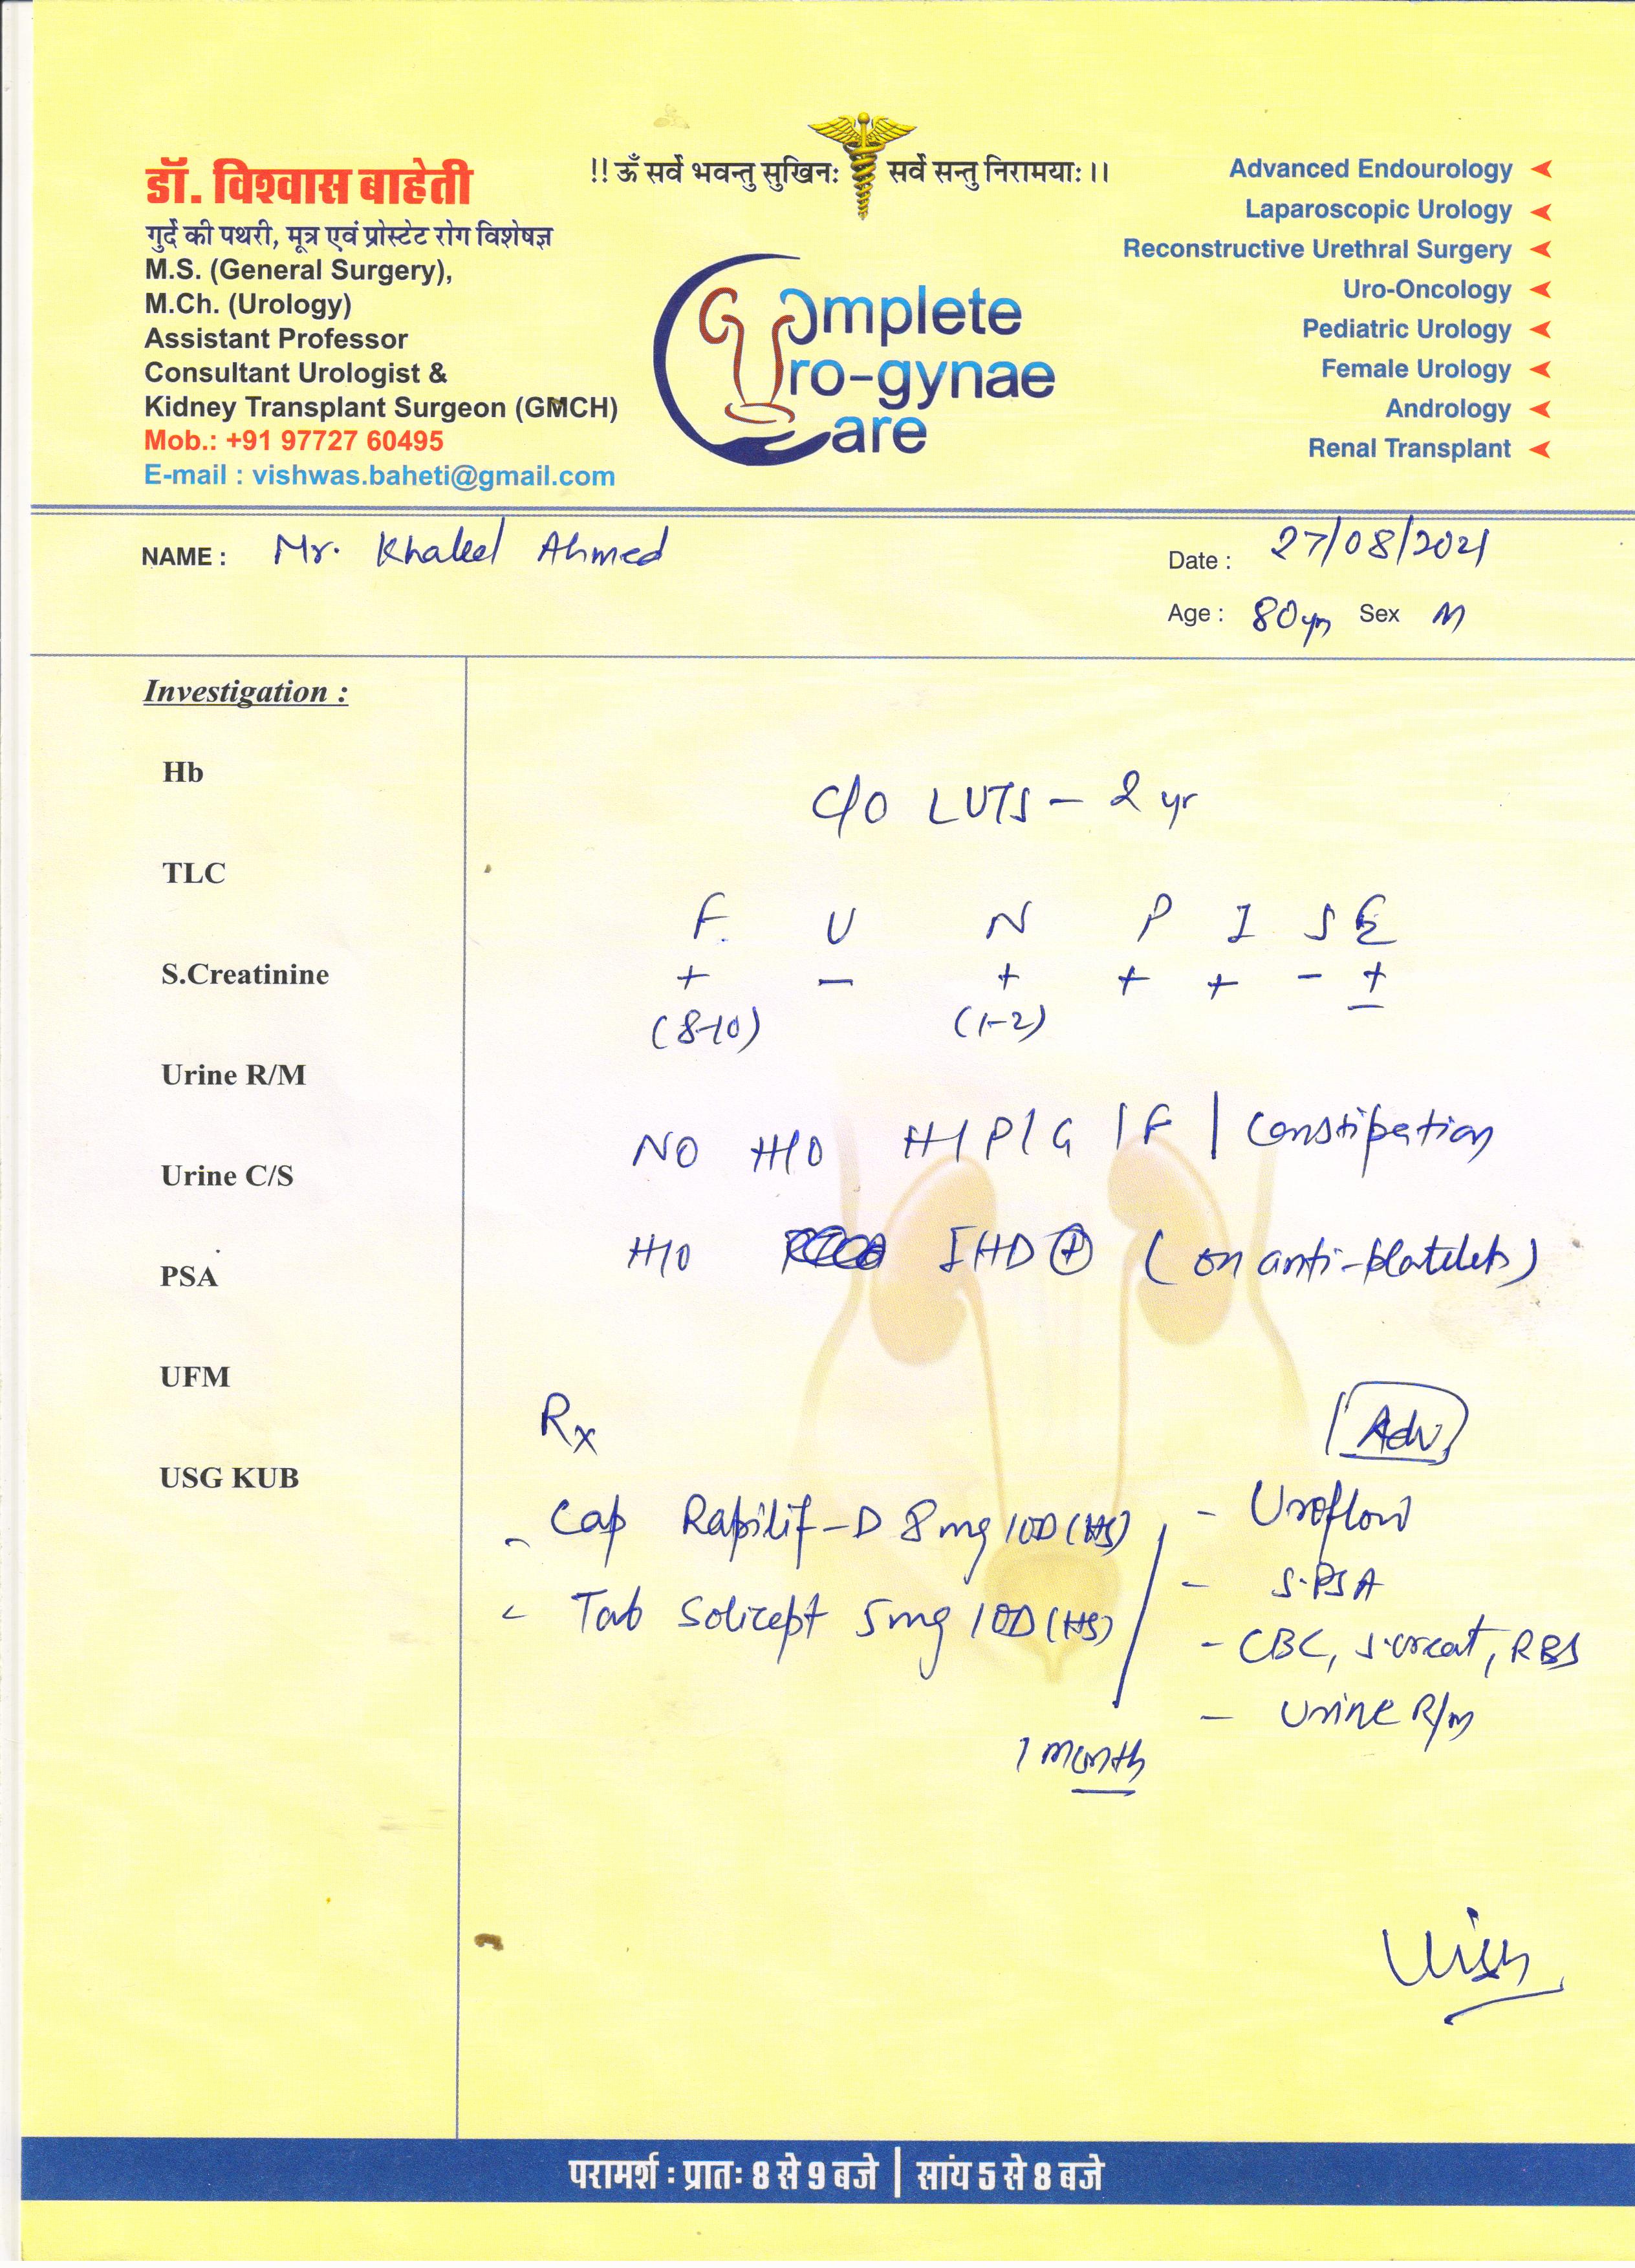 डॉ. विश्वास बाहेती
गुर्दे की पथरी, मूत्र एवं प्रोस्टेट रोग विशेषज्ञ
M.S. (General Surgery),
M.Ch. (Urology)
Assistant Professor
Consultant Urologist &
Kidney Transplant Surgeon (GMCH)
Mob.: +91 97727 60495
E-mail : vishwas.baheti@gmail.com
!! ऊँ सर्वे भवन्तु सुखिनः सर्वे सन्तु निरामयाः ।।
Complete
Uro-gynae
Care
Advanced Endourology
Laparoscopic Urology
Reconstructive Urethral Surgery
Uro-Oncology
Pediatric Urology
Female Urology
Andrology
Renal Transplant
NAME : Mr. Khaleel Ahmed
Date : 27/08/2021
Age : 80 yr Sex M
Investigation :
Hb
TLC
S.Creatinine
Urine R/M
Urine C/S
PSA
UFM
USG KUB
C/O LUTS - 2 yr
F U N P I S E
+ - + + + - ±
(8-10) (1-2)
NO H/O H/P/G/F/Constipation
H/O IHD ⊕ (on anti-platelets)
Rx
- Cap Rapilif-D 8mg 1OD (HS)
- Tab Solicept 5mg 1OD (HS)
1 month
Adv
- Uroflow
- S.PSA
- CBC, S.creat, RBS
- Urine R/m
परामर्श : प्रातः 8 से 9 बजे | सांय 5 से 8 बजे